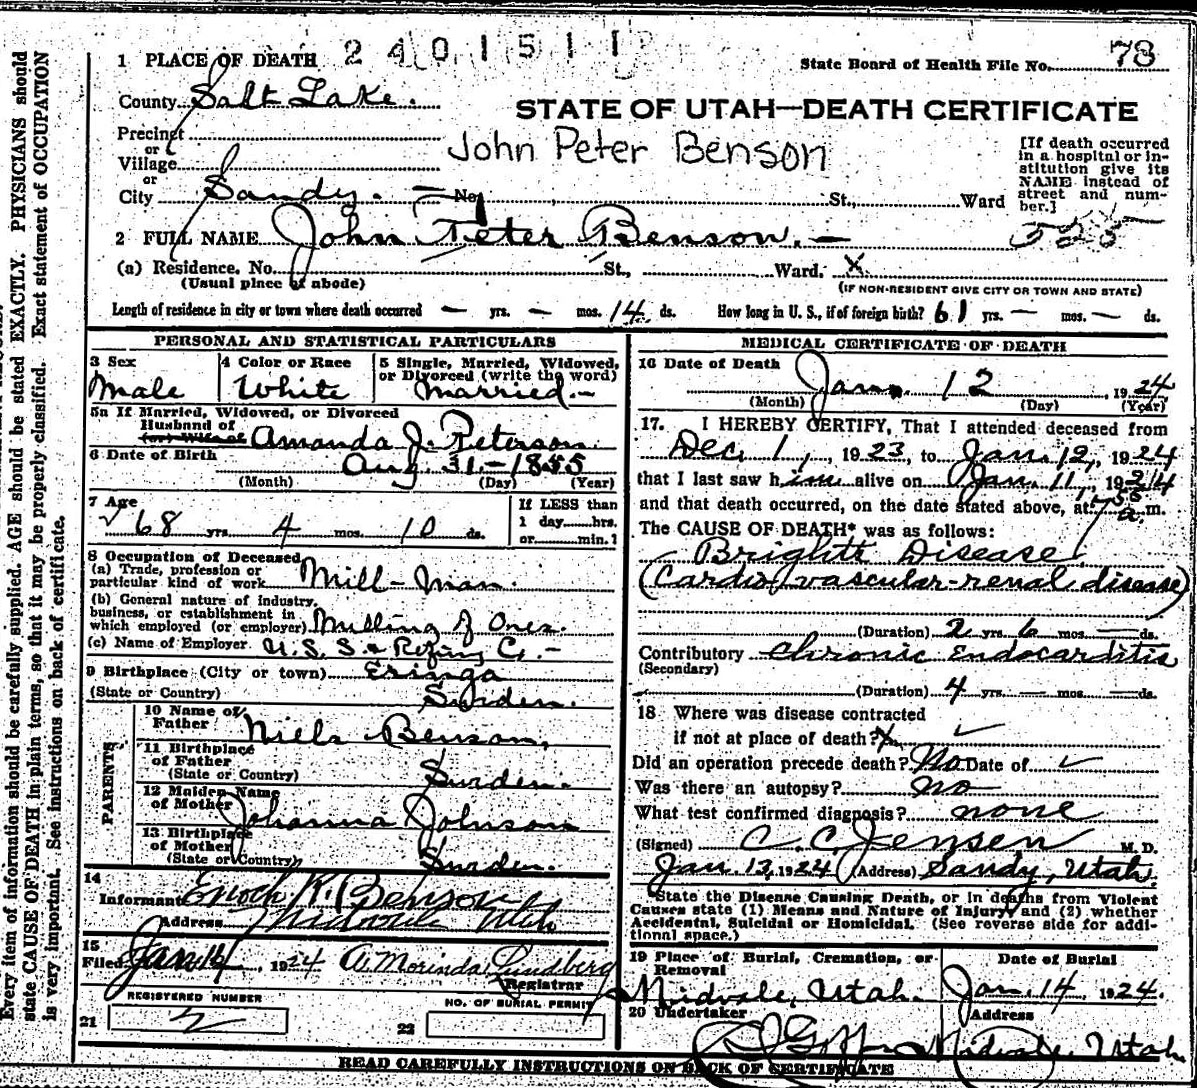 2401511
78
1 PLACE OF DEATH
State Board of Health File No.
County Salt Lake.
STATE OF UTAH—DEATH CERTIFICATE
Precinct
or
Village
or
City Sandy. — No. St., Ward
John Peter Benson
[If death occurred
in a hospital or in-
stitution give its
NAME instead of
street and num-
ber.]
2 FULL NAME John Peter Benson. —
525
(a) Residence. No. St., Ward. X
(Usual place of abode)
(IF NON-RESIDENT GIVE CITY OR TOWN AND STATE)
Length of residence in city or town where death occurred — yrs. — mos. 14 ds. How long in U. S., if of foreign birth? 61 yrs. — mos. — ds.
PERSONAL AND STATISTICAL PARTICULARS
3 Sex
Male
4 Color or Race
White
5 Single, Married, Widowed,
or Divorced (write the word)
Married. —
5a If Married, Widowed, or Divorced
Husband of
(or) Wife of Amanda J. Peterson.
6 Date of Birth
Aug. 31. — 1855
(Month) (Day) (Year)
7 Age
68 yrs. 4 mos. 10 ds.
If LESS than
1 day......hrs.
or......min.?
8 Occupation of Deceased
(a) Trade, profession or
particular kind of work Mill-man.
(b) General nature of industry,
business, or establishment in
which employed (or employer) Milling of Ores.
(c) Name of Employer U.S. S & Refing Co. —
9 Birthplace (City or town) Eringa
(State or Country) Sweden.
PARENTS
10 Name of
Father Niels Benson,
11 Birthplace
of Father
(State or Country) Sweden.
12 Maiden Name
of Mother Johanna Johnson
13 Birthplace
of Mother
(State or Country) Sweden.
14
Informant Enoch K. Benson
Address Midvale Utah
15
Filed Jan 14, 1924 A. Morinda Lundberg
Registrar
REGISTERED NUMBER
NO. OF BURIAL PERMIT
21 2
22
MEDICAL CERTIFICATE OF DEATH
16 Date of Death
Jan. 12, 1924
(Month) (Day) (Year)
17. I HEREBY CERTIFY, That I attended deceased from
Dec. 1, 1923, to Jan. 12, 1924
that I last saw him alive on Jan. 11, 1924
and that death occurred, on the date stated above, at 755 a. m.
The CAUSE OF DEATH* was as follows:
Brights Disease
(Cardio vascular-renal disease)
(Duration) 2 yrs. 6 mos. — ds.
Contributory Chronic Endocarditis
(Secondary)
(Duration) 4 yrs. — mos. — ds.
18 Where was disease contracted
if not at place of death?
Did an operation precede death? No Date of
Was there an autopsy? no
What test confirmed diagnosis? none
(Signed) C. C. Jensen M. D.
Jan. 13, 1924 (Address) Sandy, Utah.
*State the Disease Causing Death, or in deaths from Violent
Causes state (1) Means and Nature of Injury and (2) whether
Accidental, Suicidal or Homicidal. (See reverse side for addi-
tional space.)
19 Place of Burial, Cremation, or
Removal
Midvale, Utah.
Date of Burial
Jan. 14 1924.
20 Undertaker
Address
Midvale, Utah.
READ CAREFULLY INSTRUCTIONS ON BACK OF CERTIFICATE
Every item of information should be carefully supplied. AGE should be stated EXACTLY. PHYSICIANS should
state CAUSE OF DEATH in plain terms, so that it may be properly classified. Exact statement of OCCUPATION
is very important. See instructions on back of certificate.